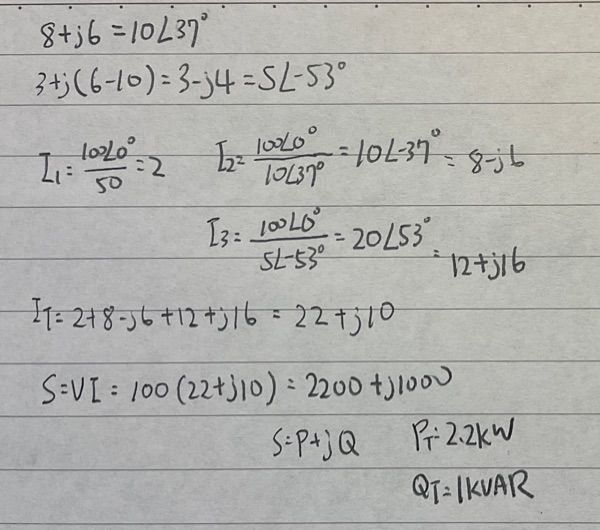 8+j6=10∠37°
3+j(6-10)=3-j4=5∠-53°
I₁=100∠0°/50=2 I₂=100∠0°/10∠37°=10∠-37°=8-j6
I₃=100∠0°/5∠-53°=20∠53°=12+j16
I_T=2+8-j6+12+j16=22+j10
S=VI=100(22+j10)=2200+j1000
S=P+jQ P_T=2.2kW
Q_T=1KVAR